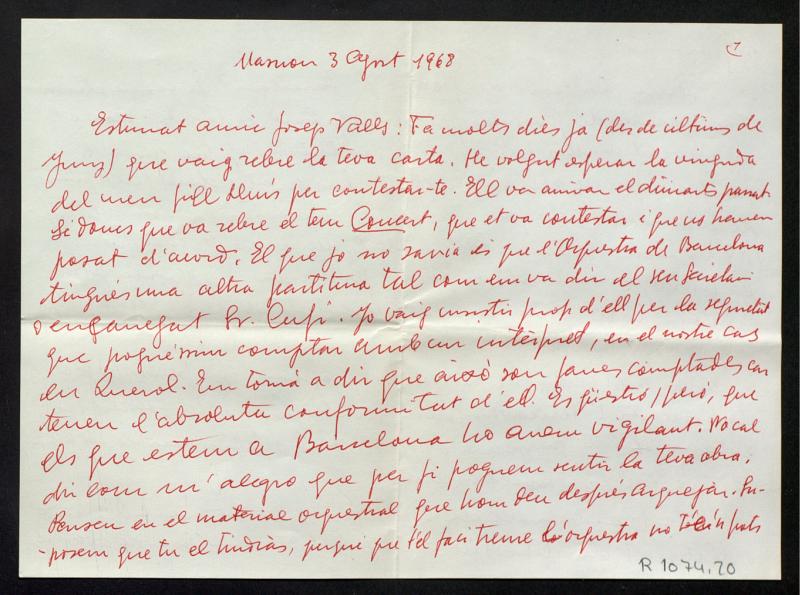 Masnou 3 Agost 1968
1
Estimat amic Josep Valls: Fa molts dies ja (des de últims de
Juny) que vaig rebre la teva carta. He volgut esperar la vinguda
del meu fill Lluís per contestar-te. Ell va arrivar el dimarts passat.
Sé doncs que va rebre el teu Concert, que et va contestar i que us haveu
posat d'acord. El que jo no savia és que l'Orquestra de Barcelona
tingués una altra partitura tal com em va dir el seu Secretari
o encarregat Sr. Cufí. Jo vaig insistir prop d'ell per la seguretat
que poguéssim comptar amb un intèrpret, en el nostre cas
en Querol. Em tornà a dir que això son faves comptades car
tenen l'absoluta conformitat d'ell. Es qüestió, però, que
els que estem a Barcelona ho anem vigilant. No cal
dir com m'alegro que per fi poguem sentir la teva obra.
Penseu en el material orquestral que hom deu després arquejar. Su-
-posem que tu el tindràs, perquè que te'l faci treure l'orquestra no
R 1074.20